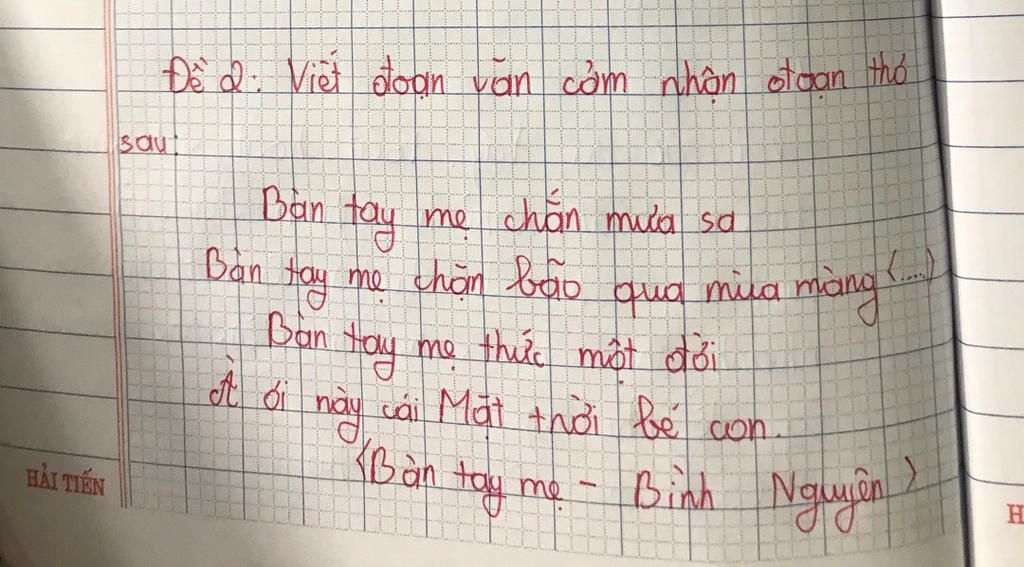 Đề 2: Viết đoạn văn cảm nhận đoạn thơ
sau:
Bàn tay mẹ chắn mưa sa
Bàn tay mẹ chặn bão qua mùa màng (....)
Bàn tay mẹ thức một đời
À ơi này cái Mặt trời bé con.
(Bàn tay mẹ - Bình Nguyên)
HẢI TIẾN
H